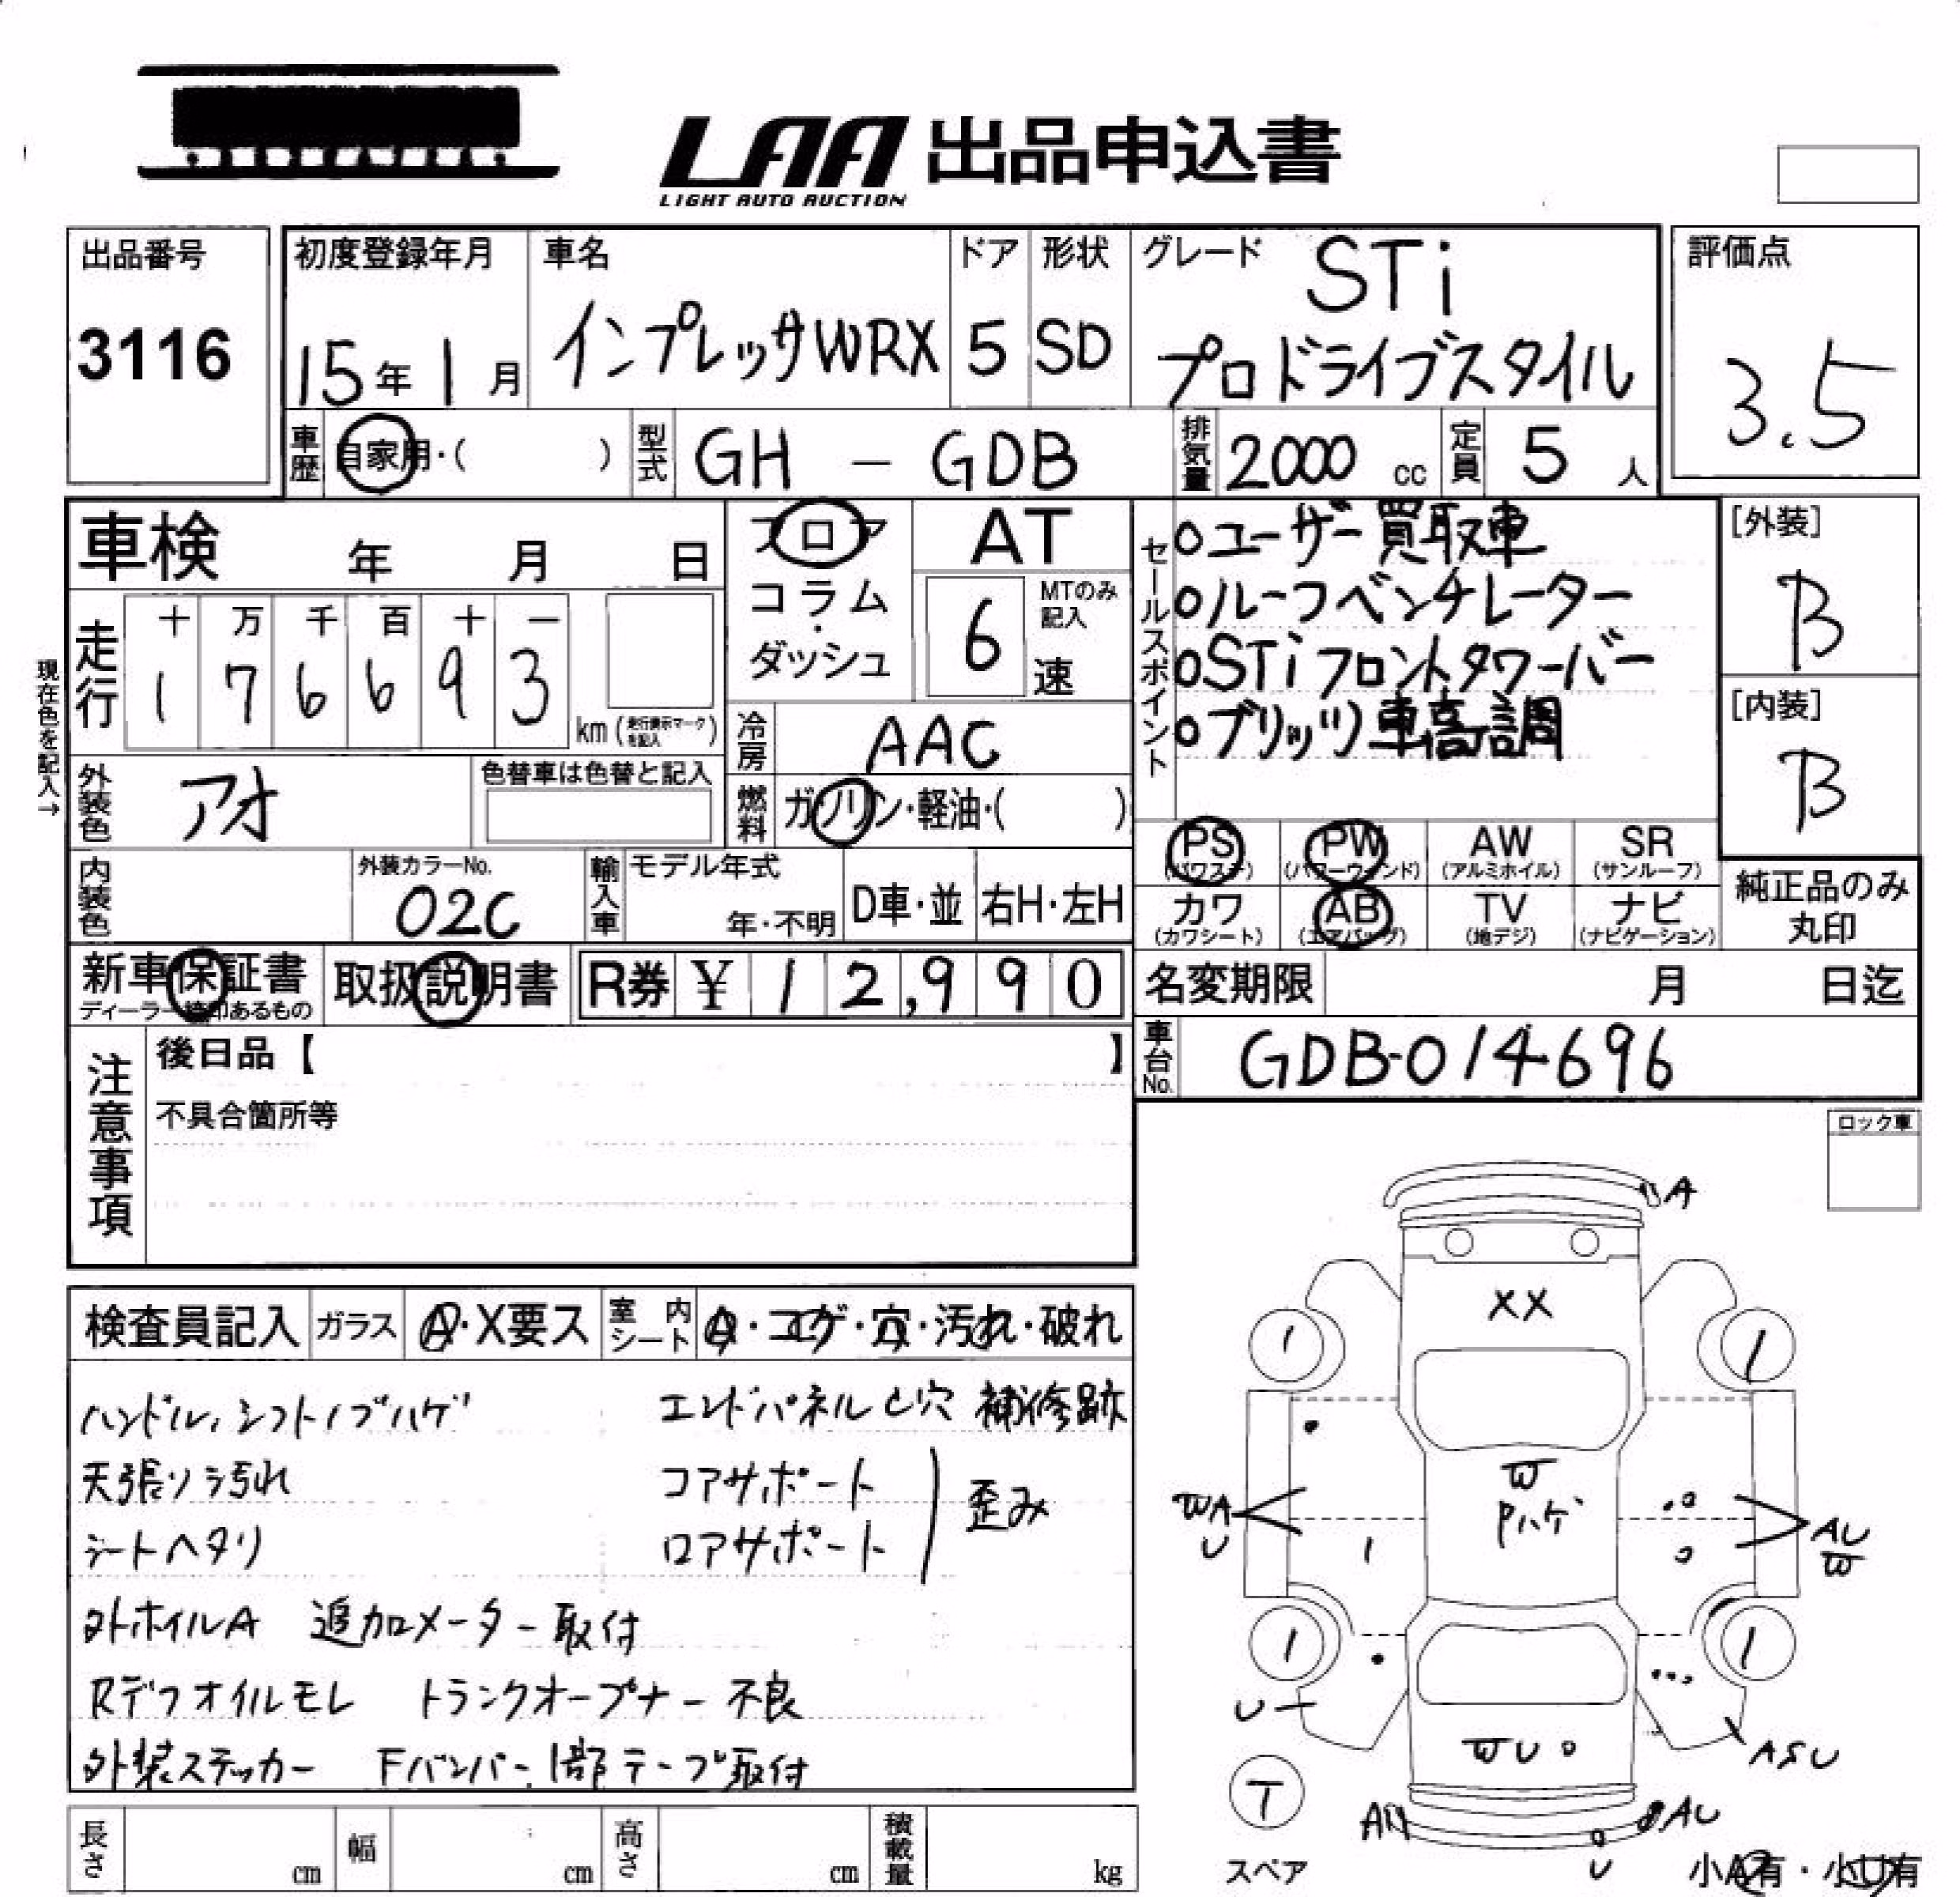 LAA 出品申込書
LIGHT AUTO AUCTION
出品番号
3116
初度登録年月
15年1月
車名
インプレッサWRX
ドア
5
形状
SD
グレード
STi
プロドライブスタイル
評価点
3.5
車歴
自家用・( )
型式
GH - GDB
排気量
2000 cc
定員
5 人
車検 年 月 日
フロア
コラム
・
ダッシュ
AT
6
MTのみ
記入
速
セールスポイント
○ユーザー買取車
○ルーフベンチレーター
○STiフロントタワーバー
○ブリッツ車高調
[外装]
B
[内装]
B
現在色を記入→
走行
十 万 千 百 十 一
1 7 6 6 9 3
km (走行表示マークを記入)
冷房
AAC
外装色
アオ
色替車は色替と記入
燃料
ガソリン・軽油・( )
PS
(パワステ)
PW
(パワーウィンド)
AW
(アルミホイル)
SR
(サンルーフ)
カワ
(カワシート)
AB
(エアバッグ)
TV
(地デジ)
ナビ
(ナビゲーション)
純正品のみ
丸印
内装色
外装カラーNo.
02C
輸入車
モデル年式
年・不明
D車・並
右H・左H
新車保証書
取扱説明書
R券 ¥ 12,990
名変期限 月 日迄
車台No.
GDB-014696
注意事項
後日品【 】
不具合箇所等
ロック車
検査員記入
ガラス
A・X要ス
室内シート
A・コゲ・穴・汚れ・破れ
ハンドル、シフトノブハゲ エンドパネル 穴 補修跡
天張り汚れ コアサポート
シートヘタリ ロアサポート 歪み
外ホイルA 追加メーター取付
Rデフオイルモレ トランクオープナー不良
外装ステッカー Fバンパー1部テープ取付
A
XX
W
Pハゲ
WA
U
AU
W
U
WU
ASU
T
スペア
AU
U
小A有・小U有
長さ cm
幅 cm
高さ cm
積載量 kg